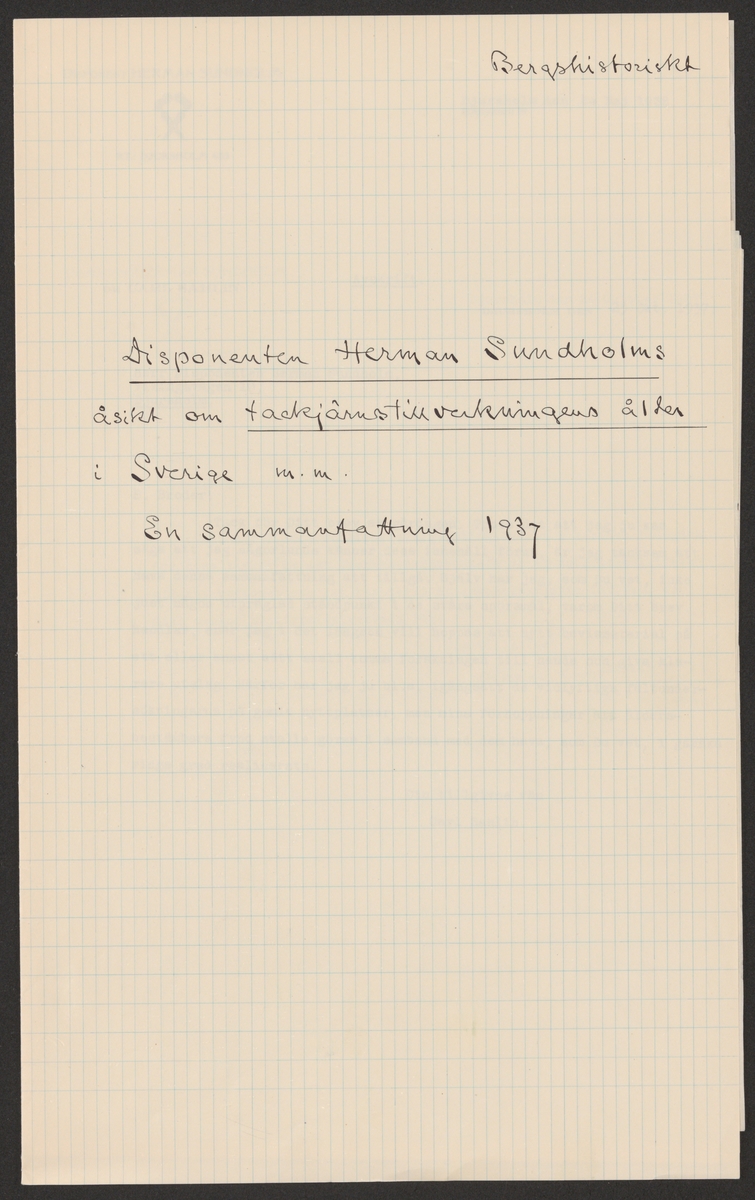 Bergshistoriskt
Disponenten Herman Sundholms
åsikt om tackjärnstillverkningens ålder
i Sverige m.m.
En sammanfattning 1937